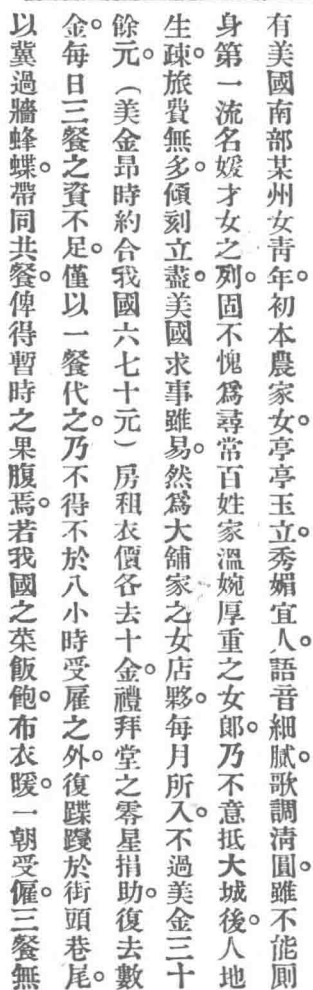 有美國南部某州女靑年。初本農家女。亭亭玉立。秀媚宜人。語音細膩。歌調淸圓。雖不能厠
身第一流名媛才女之列。固不愧爲尋常百姓家溫婉厚重之女郞。乃不意抵大城後。人地
生疎。旅費無多。傾刻立盡。美國求事雖易。然爲大舖家之女店夥。每月所入。不過美金三十
餘元。（美金昂時約合我國六七十元）房租衣價各去十金。禮拜堂之零星捐助。復去數
金。每日三餐之資不足。僅以一餐代之。乃不得不於八小時受雇之外。復蹀躞於街頭巷尾。
以冀過牆蜂蝶。帶同共餐。俾得暫時之果腹焉。若我國之菜飯飽。布衣暖。一朝受僱。三餐無